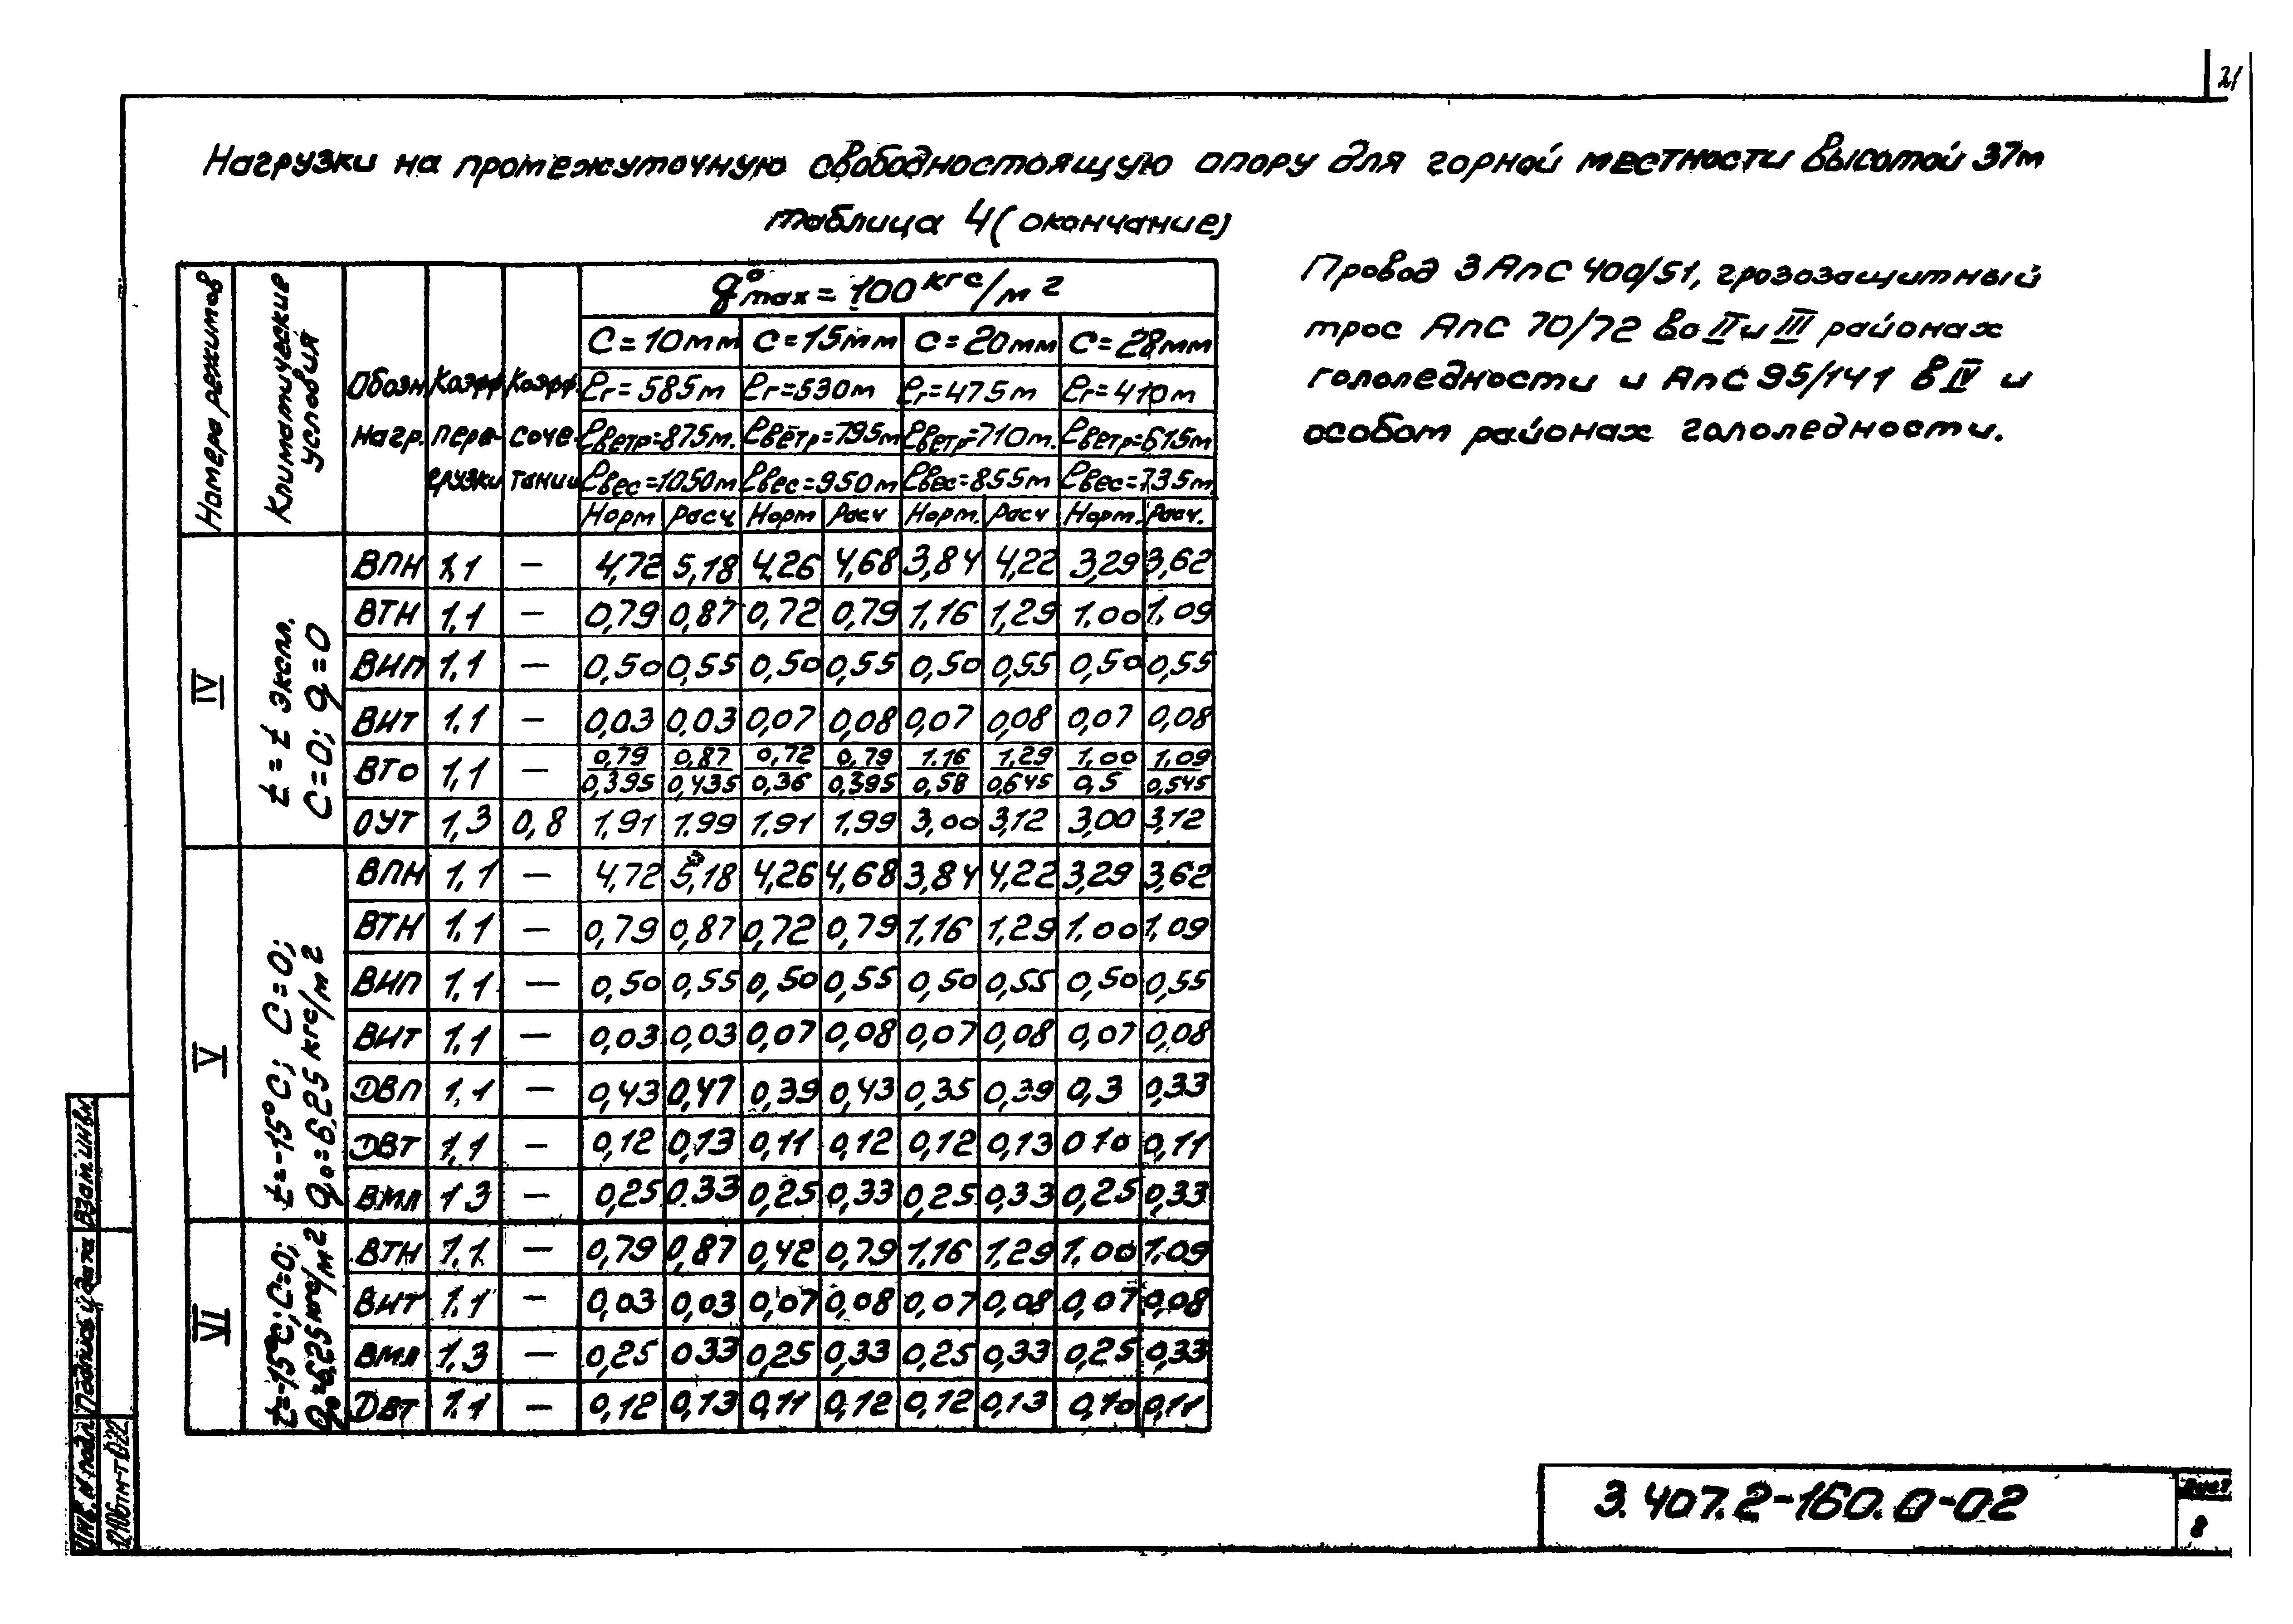 21
Нагрузки на промежуточную свободностоящую опору для горной местности высотой 37м
таблица 4 (окончание)
Провод 3 АпС 400/51, грозозащитный
трос АпС 70/72 во II и III районах
гололедности и АпС 95/141 в IV и
особом районах гололедности.
Номера режимов
Климатические условия
Обозн. нагр.
Коэфф. перегрузки
Коэфф. сочетании
q⁰max = 100 кгс/м²
C = 10мм C = 15мм C = 20мм C = 28мм
ℓг = 585м ℓг = 530м ℓг = 475м ℓг = 410м
ℓветр = 875м. ℓветр = 795м ℓветр = 710м. ℓветр = 615м
ℓвес = 1050м ℓвес = 950м ℓвес = 855м ℓвес = 735м
Норм Расч. Норм Расч Норм. Расч Норм. Расч.
IV
t = t экспл.
C=0; q=0
ВПН 1,1 — 4,72 5,18 4,26 4,68 3,84 4,22 3,29 3,62
ВТН 1,1 — 0,79 0,87 0,72 0,79 1,16 1,29 1.00 1,09
ВИП 1,1 — 0,50 0,55 0,50 0,55 0,50 0,55 0,50 0,55
ВИТ 1.1 — 0,03 0,03 0,07 0,08 0,07 0,08 0,07 0,08
ВТО 1,1 — 0,79/0,395 0,87/0,435 0,72/0,36 0,79/0,395 1.16/0,58 1,29/0,645 1,00/0,5 1,09/0,545
ОУТ 1,3 0,8 1,91 1.99 1.91 1.99 3,00 3,12 3,00 3,12
V
t=-15°C; C=0;
q₀=6,25 кгс/м²
ВПН 1,1 — 4,72 5,18 4,26 4,68 3,84 4,22 3,29 3,62
ВТН 1.1 — 0,79 0,87 0,72 0,79 1,16 1,29 1.00 1,09
ВИП 1.1 — 0,50 0,55 0,50 0,55 0,50 0,55 0,50 0,55
ВИТ 1.1 — 0,03 0,03 0,07 0,08 0,07 0,08 0,07 0,08
ДВП 1,1 — 0,43 0,47 0,39 0,43 0,35 0,39 0,3 0,33
ДВТ 1,1 — 0,12 0,13 0,11 0,12 0,12 0,13 0 10 0,11
ВМЛ 1 3 — 0,25 0.33 0,25 0,33 0,25 0,33 0,25 0,33
VI
t=-15°C; C=0;
q₀=6,25 кгс/м²
ВТН 1,1 — 0,79 0,87 0,42 0,79 1,16 1,29 1,00 1.09
ВИТ 1.1 — 0,03 0,03 0,07 0,08 0,07 0,08 0,07 0,08
ВМЛ 1,3 — 0,25 0 33 0,25 0,33 0,25 0,33 0,25 0,33
ДВТ 1.1 — 0,12 0,13 0,11 0,12 0,12 0,13 0,10 0,11
Взам.инв.N
Подпись и дата
Инв. N подл
3.407.2-160.0-02
Лист
8